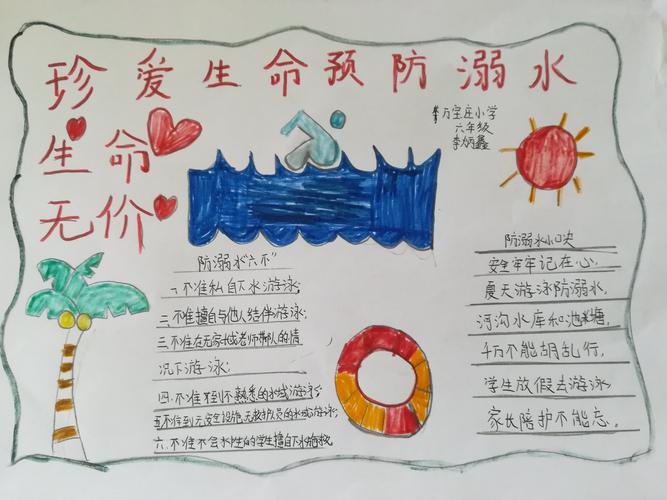 珍爱生命预防溺水
生命
无价
万宝庄小学
六年级
李炳鑫
防溺水"六不"
一.不准私自下水游泳;
二.不准擅自与他人结伴游泳;
三.不准在无家长或老师带队的情
况下游泳;
四.不准到不熟悉的水域游泳;
五.不准到无安全设施,无救护人员的水域游泳;
六.不准不会水性的学生擅自下水施救.
防溺水小口决
安全牢牢记在心.
夏天游泳防溺水,
河沟水库和池塘,
千万不能胡乱行,
学生放假去游泳
家长陪护不能忘.